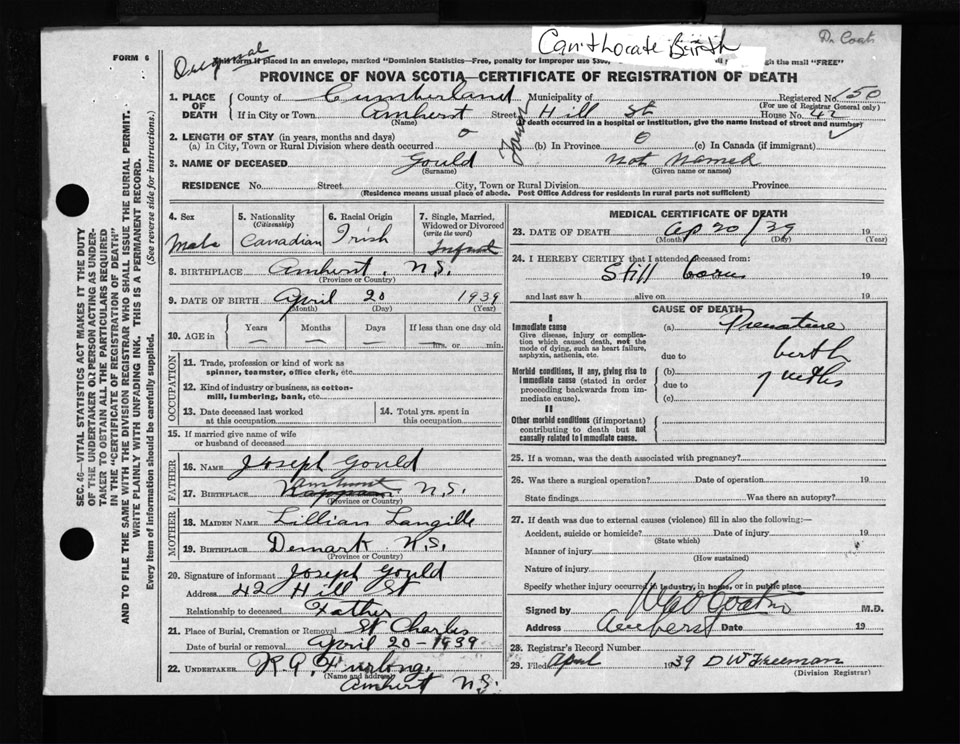 Can't locate Birth
Dr Coats
FORM 6
Original
This form if placed in an envelope, marked "Dominion Statistics—Free, penalty for improper use $300, the mail "FREE"
PROVINCE OF NOVA SCOTIA—CERTIFICATE OF REGISTRATION OF DEATH
1. PLACE OF DEATH
County of Cumberland Municipality of Registered No. 150
(For use of Registrar General only)
If in City or Town Amherst Street Hill St House No. 42
(Name) death occurred in a hospital or institution, give the name instead of street and number)
2. LENGTH OF STAY (in years, months and days)
(a) In City, Town or Rural Division where death occurred 0 (b) In Province 0 (c) In Canada (if immigrant)
3. NAME OF DECEASED Gould Not Named
(Surname) (Given name or names)
RESIDENCE No. Street City, Town or Rural Division Province
(Residence means usual place of abode. Post Office Address for residents in rural parts not sufficient)
4. Sex
Male
5. Nationality
(Citizenship)
Canadian
6. Racial Origin
Irish
7. Single, Married, Widowed or Divorced
(write the word)
Infant
8. BIRTHPLACE Amherst, N.S.
(Province or Country)
9. DATE OF BIRTH April 20 1939
(Month) (Day) (Year)
10. AGE in Years Months Days If less than one day old
— — — — hrs. or min.
OCCUPATION
11. Trade, profession or kind of work as
spinner, teamster, office clerk, etc.
12. Kind of industry or business, as cotton-
mill, lumbering, bank, etc.
13. Date deceased last worked
at this occupation
14. Total yrs. spent in
this occupation
15. If married give name of wife
or husband of deceased
FATHER
16. NAME Joseph Gould
Amherst
17. BIRTHPLACE Nappan N.S.
(Province or Country)
MOTHER
18. MAIDEN NAME Lillian Langille
19. BIRTHPLACE Demark N.S.
(Province or Country)
20. Signature of informant Joseph Gould
Address 42 Hill St
Relationship to deceased Father
21. Place of Burial, Cremation or Removal St Charles
Date of burial or removal April 20-1939
22. UNDERTAKER R.A. Furlong.
(Name and address)
Amherst N.S.
MEDICAL CERTIFICATE OF DEATH
23. DATE OF DEATH Ap 20/39 19
(Month) (Day) (Year)
24. I HEREBY CERTIFY that I attended deceased from:
Still born 19
and last saw h alive on 19
CAUSE OF DEATH
I
Immediate cause
Give disease, injury or complica-
tion which caused death, not the
mode of dying, such as heart failure,
asphyxia, asthenia, etc.
(a) Premature
due to birth
Morbid conditions, if any, giving rise to
Immediate cause (stated in order
proceeding backwards from im-
mediate cause).
(b) 7 mths
due to
(c)
II
Other morbid conditions (if important)
contributing to death but not
causally related to immediate cause.
25. If a woman, was the death associated with pregnancy?
26. Was there a surgical operation? Date of operation 19
State findings Was there an autopsy?
27. If death was due to external causes (violence) fill in also the following:—
Accident, suicide or homicide? Date of injury 19
(State which)
Manner of injury
(How sustained)
Nature of injury
Specify whether injury occurred in industry, in home, or in public place
Signed by Coates M.D.
Address Amherst Date 19
28. Registrar's Record Number
29. Filed April 1939 D W Freeman
(Division Registrar)
SEC. 46—VITAL STATISTICS ACT MAKES IT THE DUTY
OF THE UNDERTAKER OR PERSON ACTING AS UNDER-
TAKER TO OBTAIN ALL THE PARTICULARS REQUIRED
IN THE "CERTIFICATE OF REGISTRATION OF DEATH"
AND TO FILE THE SAME WITH THE DIVISION REGISTRAR WHO SHALL ISSUE THE BURIAL PERMIT.
WRITE PLAINLY WITH UNFADING INK. THIS IS A PERMANENT RECORD.
Every item of information should be carefully supplied. (See reverse side for instructions.)